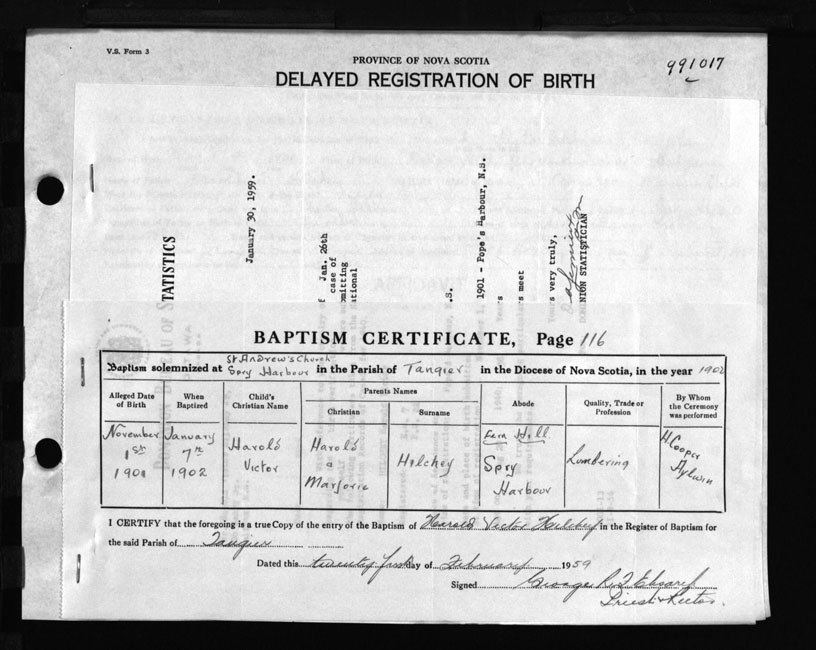 V.S. Form 3
PROVINCE OF NOVA SCOTIA
DELAYED REGISTRATION OF BIRTH
991017
STATISTICS
January 30, 1959.
Jan. 26th
case of
1901 - Pope's Harbour, N.S.
s meet
s very truly,
NION STATISTICIAN
BAPTISM CERTIFICATE, Page 116
Baptism solemnized at St Andrew's Church Spry Harbour in the Parish of Tangier in the Diocese of Nova Scotia, in the year 1902
Alleged Date of Birth
When Baptized
Child's Christian Name
Parents Names
Christian
Surname
Abode
Quality, Trade or Profession
By Whom the Ceremony was performed
November 1st 1901
January 7th 1902
Harold Victor
Harold & Marjorie
Hilchey
Fern Hill Spry Harbour
Lumbering
H Cooper Aylwin
I CERTIFY that the foregoing is a true Copy of the entry of the Baptism of Harold Victor Hilchey in the Register of Baptism for
the said Parish of Tangier
Dated this twenty first day of February 1959
Signed George R.
Priest & Rector.